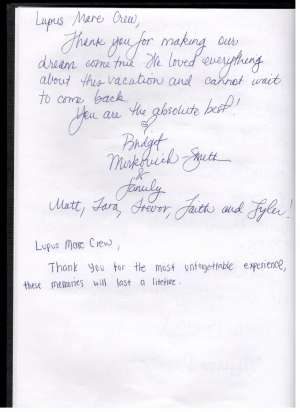 Lupus Mare Crew,
Thank you for making our
dream come true. We loved everything
about this vacation and cannot wait
to come back.
You are the absolute best!
Bridget
Smith
&
Family
Matt, Tara, Trevor, Faith and Tyler!
Lupus Mare Crew,
Thank you for the most unforgettable experience,
these memories will last a lifetime.